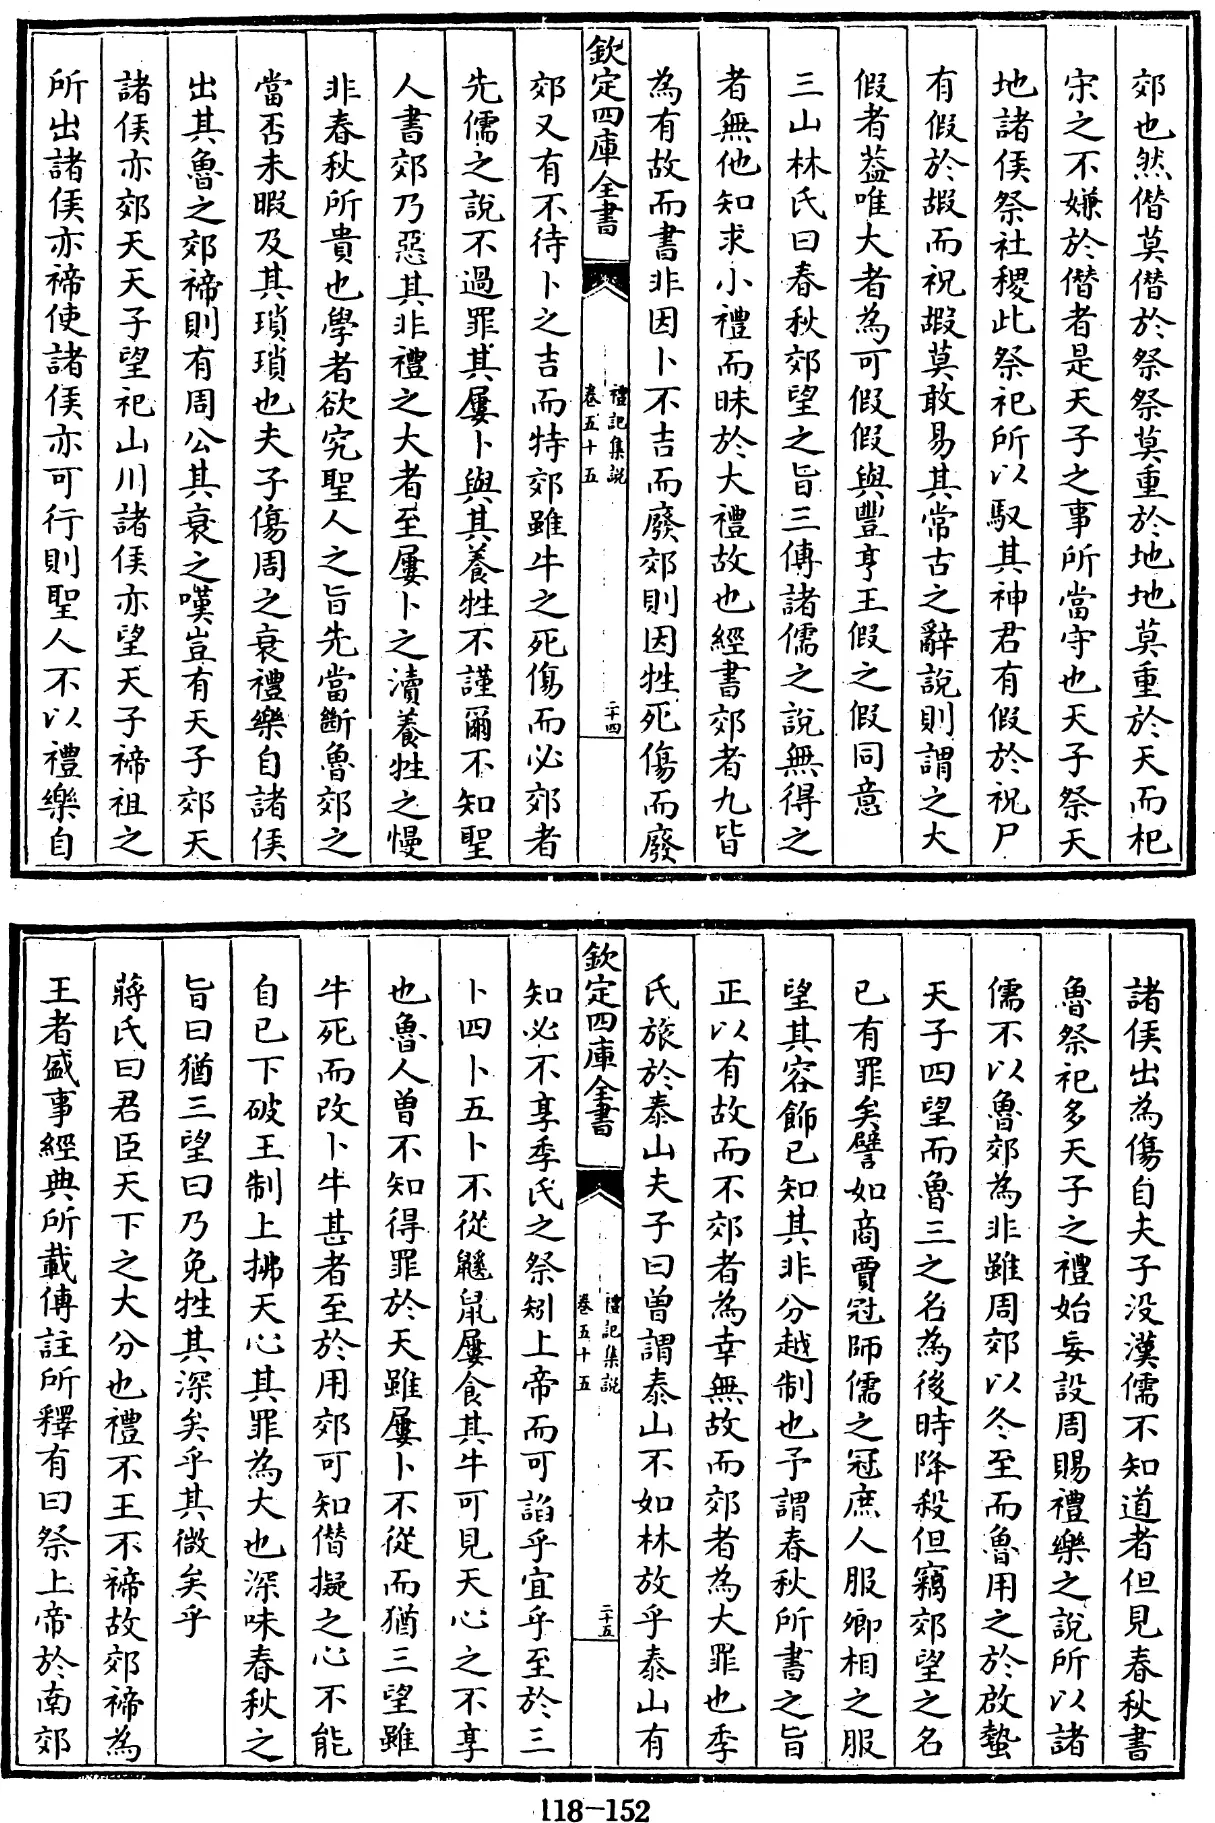 郊也然僭莫僭於祭祭莫重於地地莫重於天而杞
宋之不嫌於僭者是天子之事所當守也天子祭天
地諸侯祭社稷此祭祀所以馭其神君有假於祝尸
有假於嘏而祝嘏莫敢易其常古之辭說則謂之大
假者蓋唯大者為可假假與豐亨王假之假同意
三山林氏曰春秋郊望之旨三傳諸儒之說無得之
者無他知求小禮而昧於大禮故也經書郊者九皆
為有故而書非因卜不吉而廢郊則因牲死傷而廢
欽定四庫全書
禮記集說
卷五十五
二十四
郊又有不待卜之吉而特郊雖牛之死傷而必郊者
先儒之說不過罪其屢卜與其養牲不謹爾不知聖
人書郊乃惡其非禮之大者至屢卜之瀆養牲之慢
非春秋所貴也學者欲究聖人之旨先當斷魯郊之
當否未暇及其瑣瑣也夫子傷周之衰禮樂自諸侯
出其魯之郊禘則有周公其衰之嘆豈有天子郊天
諸侯亦郊天天子望祀山川諸侯亦望天子禘祖之
所出諸侯亦禘使諸侯亦可行則聖人不以禮樂自
諸侯出為傷自夫子沒漢儒不知道者但見春秋書
魯祭祀多天子之禮始妄設周賜禮樂之說所以諸
儒不以魯郊為非雖周郊以冬至而魯用之於啟蟄
天子四望而魯三之名為後時降殺但竊郊望之名
已有罪矣譬如商賈冠師儒之冠庶人服卿相之服
望其容飾已知其非分越制也予謂春秋所書之旨
正以有故而不郊者為幸無故而郊者為大罪也季
氏旅於泰山夫子曰曾謂泰山不如林放乎泰山有
欽定四庫全書
禮記集說
卷五十五
二十五
知必不享季氏之祭矧上帝而可諂乎宜乎至於三
卜四卜五卜不從鼷鼠屢食其牛可見天心之不享
也魯人曾不知得罪於天雖屢卜不從而猶三望雖
牛死而改卜牛甚者至於用郊可知僭擬之心不能
自已下破王制上拂天心其罪為大也深味春秋之
旨曰猶三望曰乃免牲其深矣乎其微矣乎
蔣氏曰君臣天下之大分也禮不王不禘故郊禘為
王者盛事經典所載傳註所釋有曰祭上帝於南郊
118-152